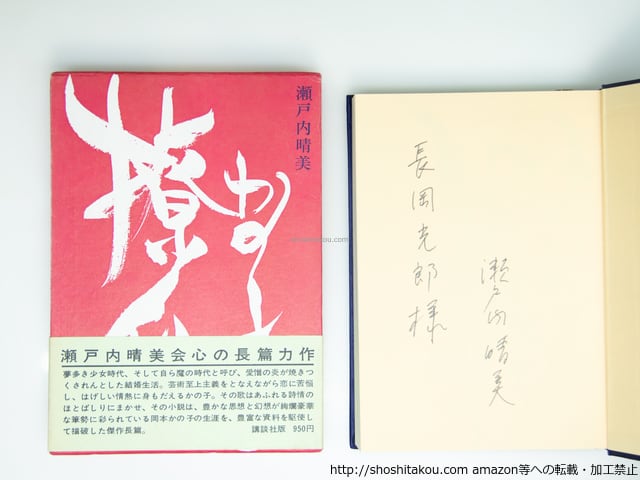 瀬戸内晴美
かの子
撩乱
瀬戸内晴美会心の長篇力作
夢多き少女時代、そして自ら魔の時代と呼び、愛憎の炎が焼きつ
くされんとした結婚生活。芸術至上主義をとなえながら恋に苦悩
し、はげしい情熱に身もだえるかの子。その歌はあふれる詩情の
ほとばしりにまかせ、その小説は、豊かな思想と幻想が絢爛豪華
な筆勢に彩られている岡本かの子の生涯を、豊富な資料を駆使し
て描破した傑作長篇。
講談社版 950円
長岡光郎様
瀬戸内晴美
shoshitakou.com
http://shoshitakou.com amazon等への転載・加工禁止